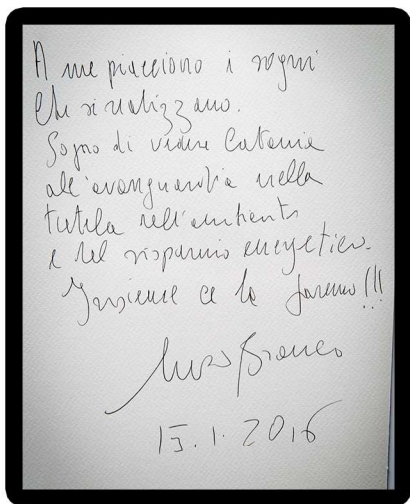 A me piacciono i sogni
che si realizzano.
Sogno di vedere Catania
all'avanguardia nella
tutela dell'ambiente
e del risparmio energetico.
Insieme ce la faremo!!!
Enzo Bianco
15.1.2016